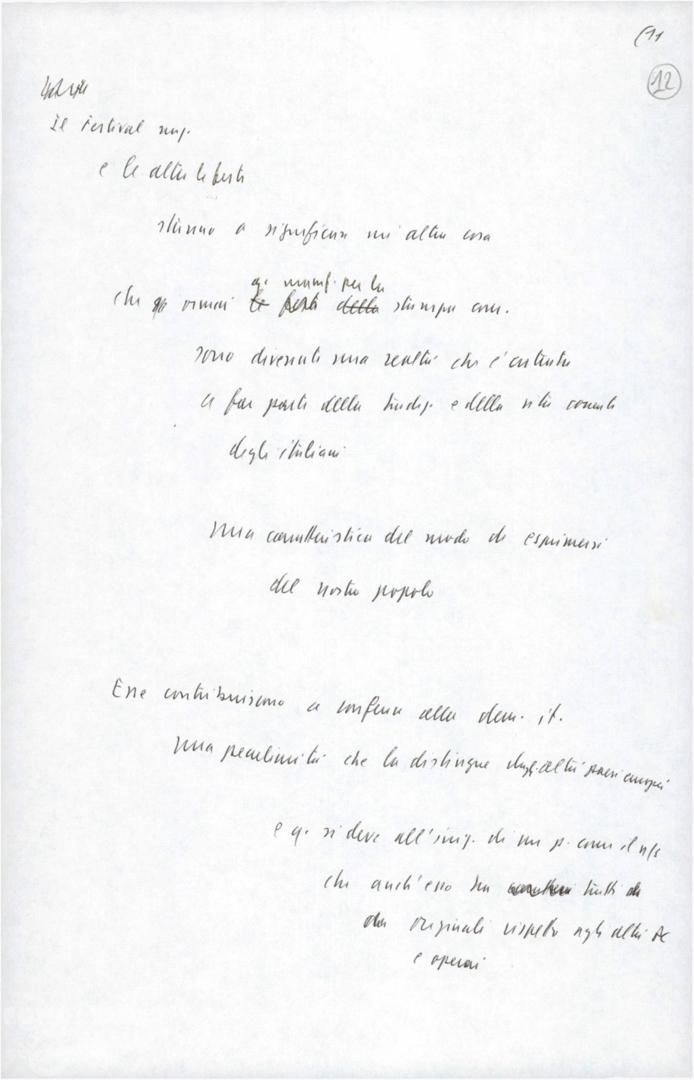 (11
12
Il Festival naz.
e le altre feste
stanno a significare un'altra cosa
che ormai le feste della q. manif. per la stampa com.
sono diventate una realtà che è entrata
a far parte della tradiz. e della vita corrente
degli italiani
una caratteristica del modo di esprimersi
del nostro popolo
Esse contribuiscono a conferire alla dem. it.
una peculiarità che la distingue dagli altri paesi europei
e q. si deve all'esist. di un p. come il ns
che anch'esso ha tratti
originali rispetto agli altri PC
e operai